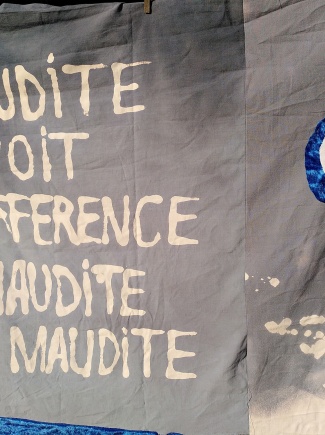 UDiTE
OiT
FFERENCE
MAUDiTE
MAUDiTE